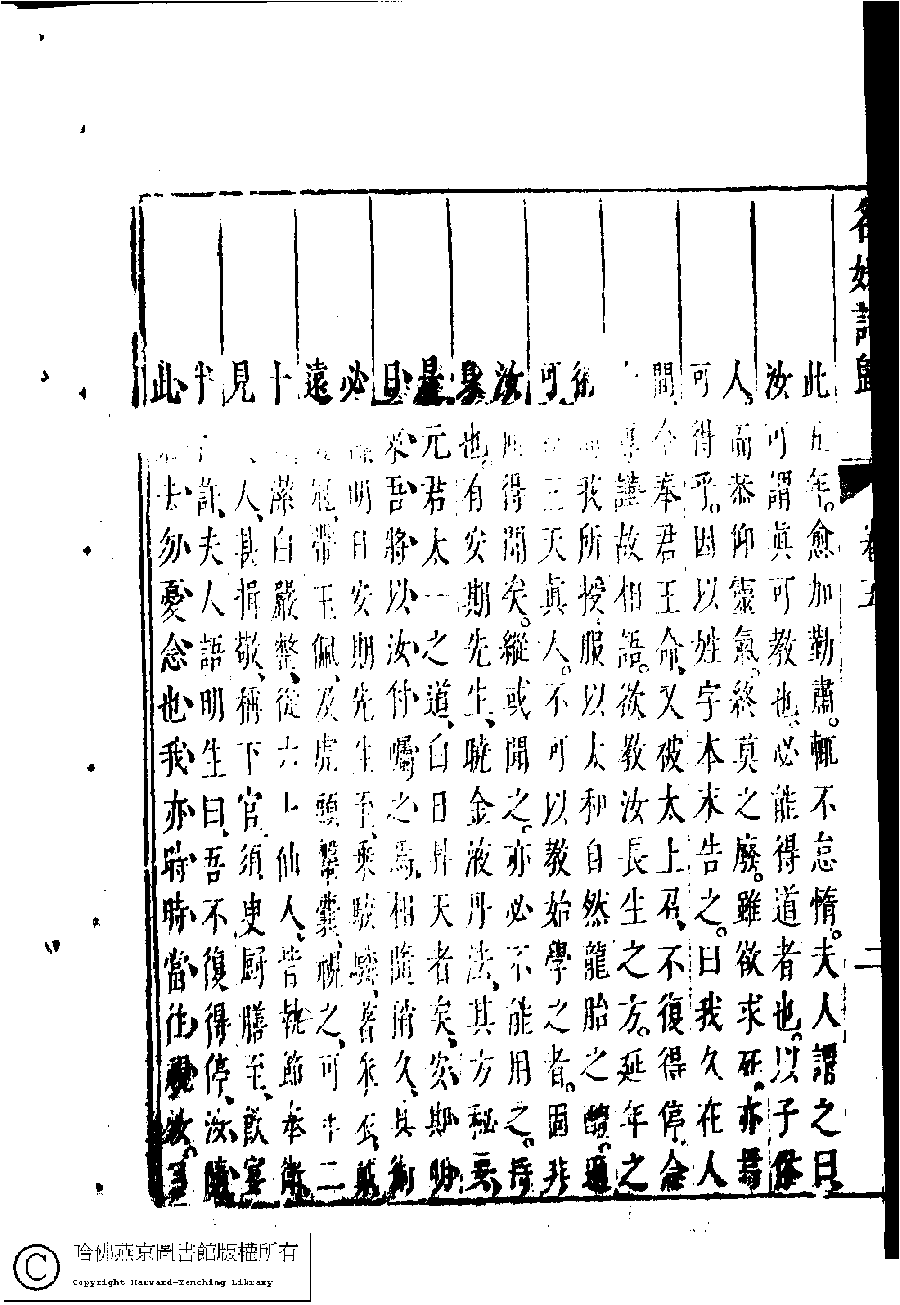 名媛詩歸
卷五
二
此五年。愈加勤肅。輒不怠惰。夫人謂之曰
汝可謂眞可教也。必能得道者也。以子俗
人。而恭仰靈氣。終莫之廢。雖欲求死。亦焉
可得乎。因以姓字本末告之。曰我久在人
間、今奉君王命、又被太上召、不復得停、念
謹故相語。欲教汝長生之方。延年之
我所授、服以太和自然龍胎之醴。適
可三天眞人。不可以教始學之者。固非
汝所得聞矣。縱或聞之。亦必不能用之。持
也。有安期先生、曉金液丹法、其方秘要
是元君太一之道、白日昇天者矣、安期明
日來、吾將以汝付囑之焉、相隨稍久、其術
必 明日安期先生至、乘駁驎、著朱衣、戴
遠 冠、帶玉佩、及虎頭鞶囊、視之、可年二
十 潔白嚴整、從六七仙人、皆執節奉衛
見 人、甚揖敬、稱下官、須臾厨膳至、飲宴
半 許、夫人語明生曰、吾不復得停、汝隨
此 去、勿憂念也、我亦時時當往視汝。
哈佛燕京圖書館版權所有
Copyright Harvard-Yenching Library